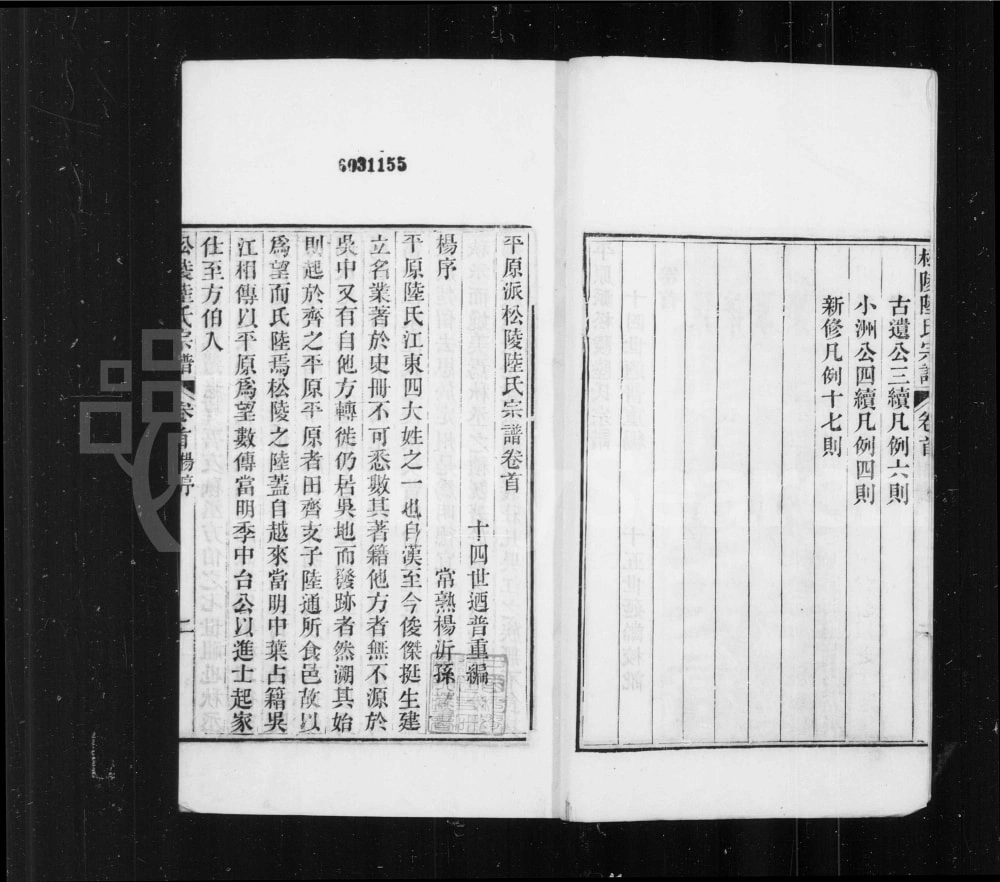 松陵陸氏宗譜 卷首
古遺公三續凡例六則
小洲公四續凡例四則
新修凡例十七則
二
6031155
平原派松陵陸氏宗譜卷首
十四世迺普重編
楊序
常熟楊沂孫
平原陸氏江東四大姓之一也自漢至今俊傑挺生建
立名業著於史冊不可悉數其著籍他方者無不源於
吳中又有自他方轉徙仍居吳地而發跡者然溯其始
則起於齊之平原平原者田齊支子陸通所食邑故以
爲望而氏陸焉松陵之陸蓋自越來當明中葉占籍吳
江相傳以平原爲望數傳當明季中台公以進士起家
仕至方伯入
松陵陸氏宗譜 卷首 楊序